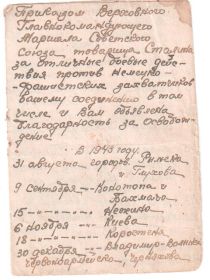 Приказом Верховного
Главнокомандующего
Маршала Советского
Союза товарища Сталина
за отличные боевые дей-
ствия против немецко-
фашистских захватчиков
вашему соединению в том
числе и Вам объявлена
благодарность за освобож-
дение
В 1943 году
31 августа городов Рыльска
и Глухова
9 сентября - Конотопа и
Бахмача
15 -"- Нежина
6 ноября - Киева
18 -"- Коростеня
30 декабря -